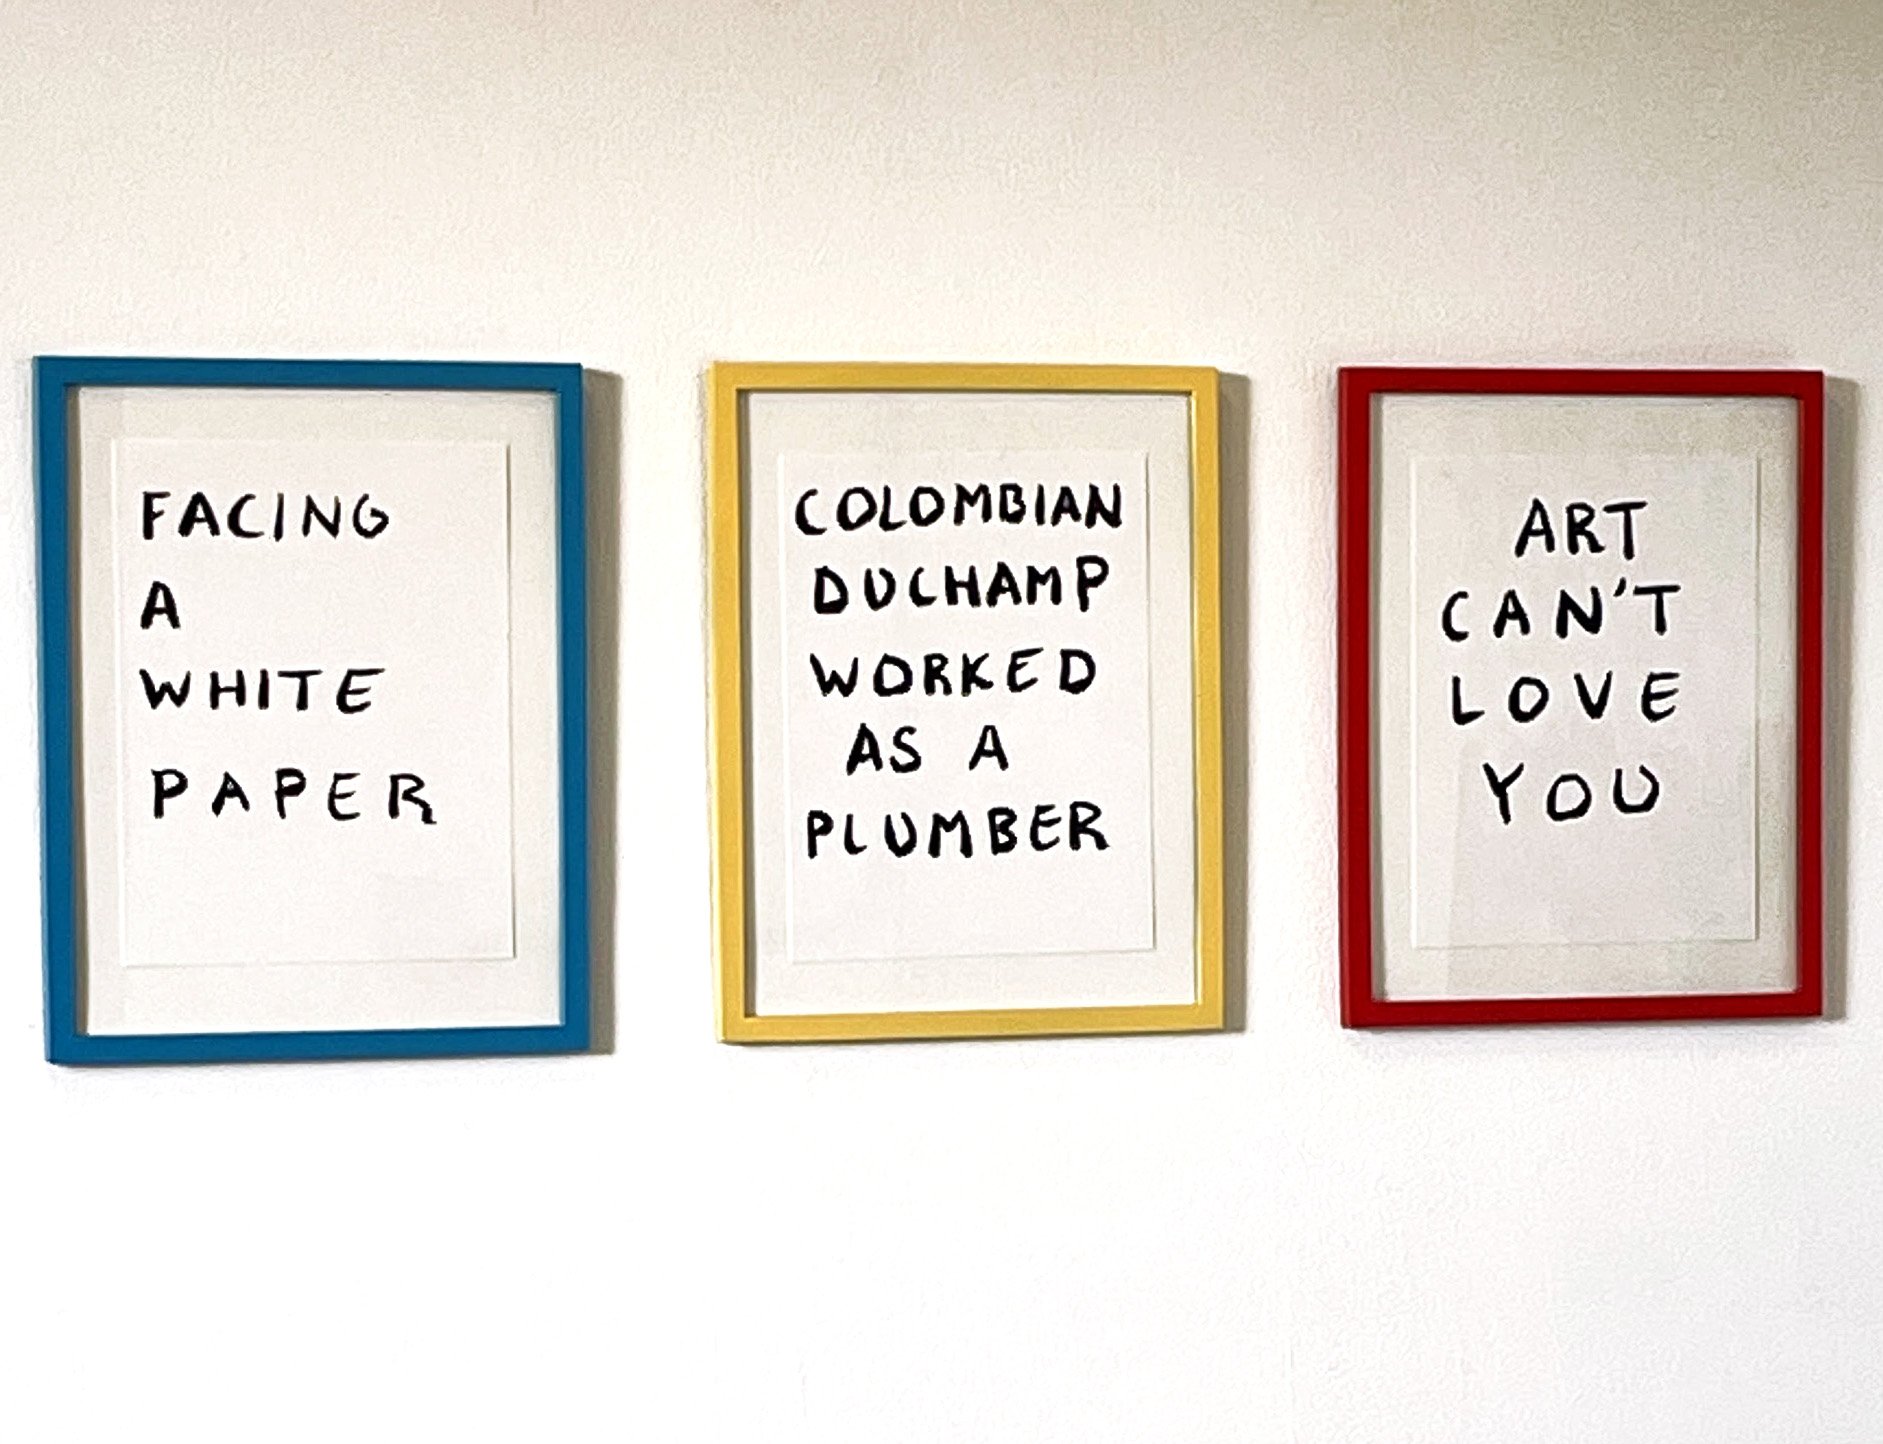 FACING
A
WHITE
PAPER
COLOMBIAN
DUCHAMP
WORKED
AS A
PLUMBER
ART
CAN'T
LOVE
YOU